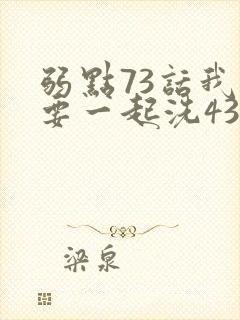 弱點73話我
要一起洗43
梁泉